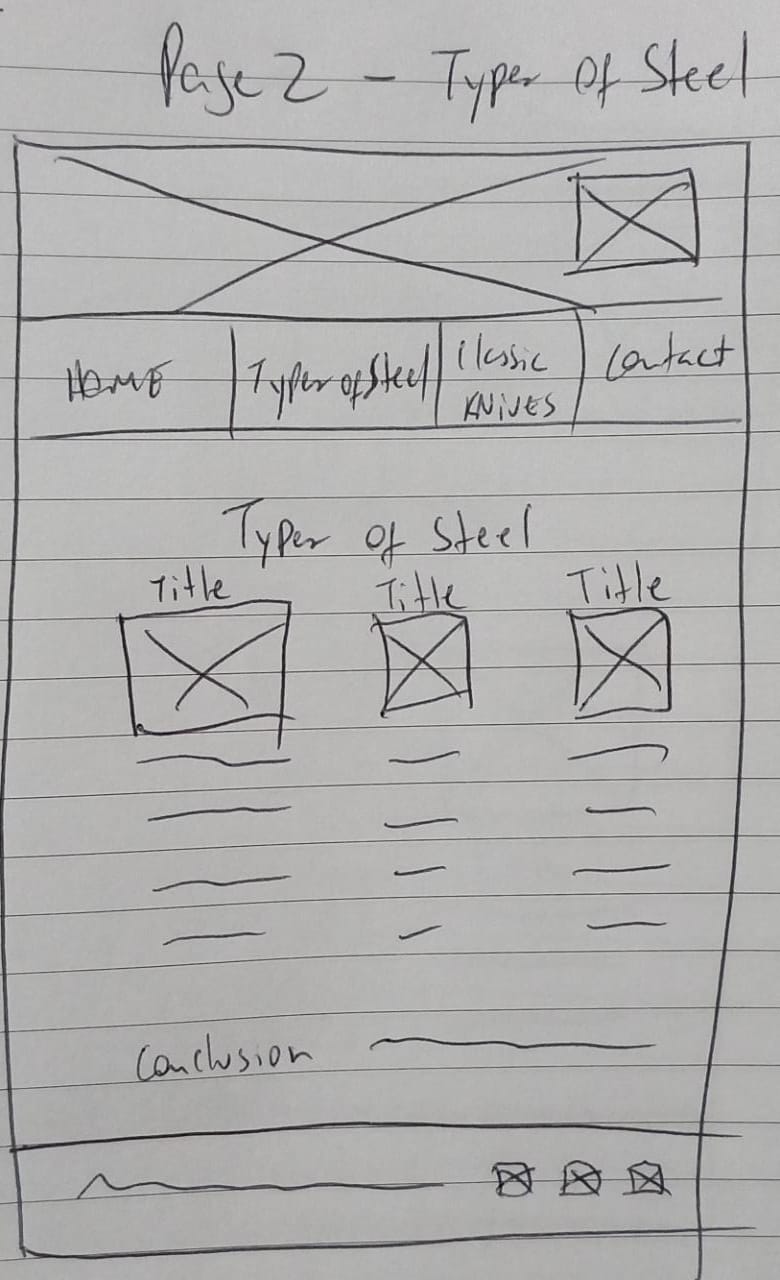 Page 2 - Types of Steel
HOME
Types of Steel
Classic
KNIVES
Contact
Types of Steel
Title
Title
Title
Conclusion